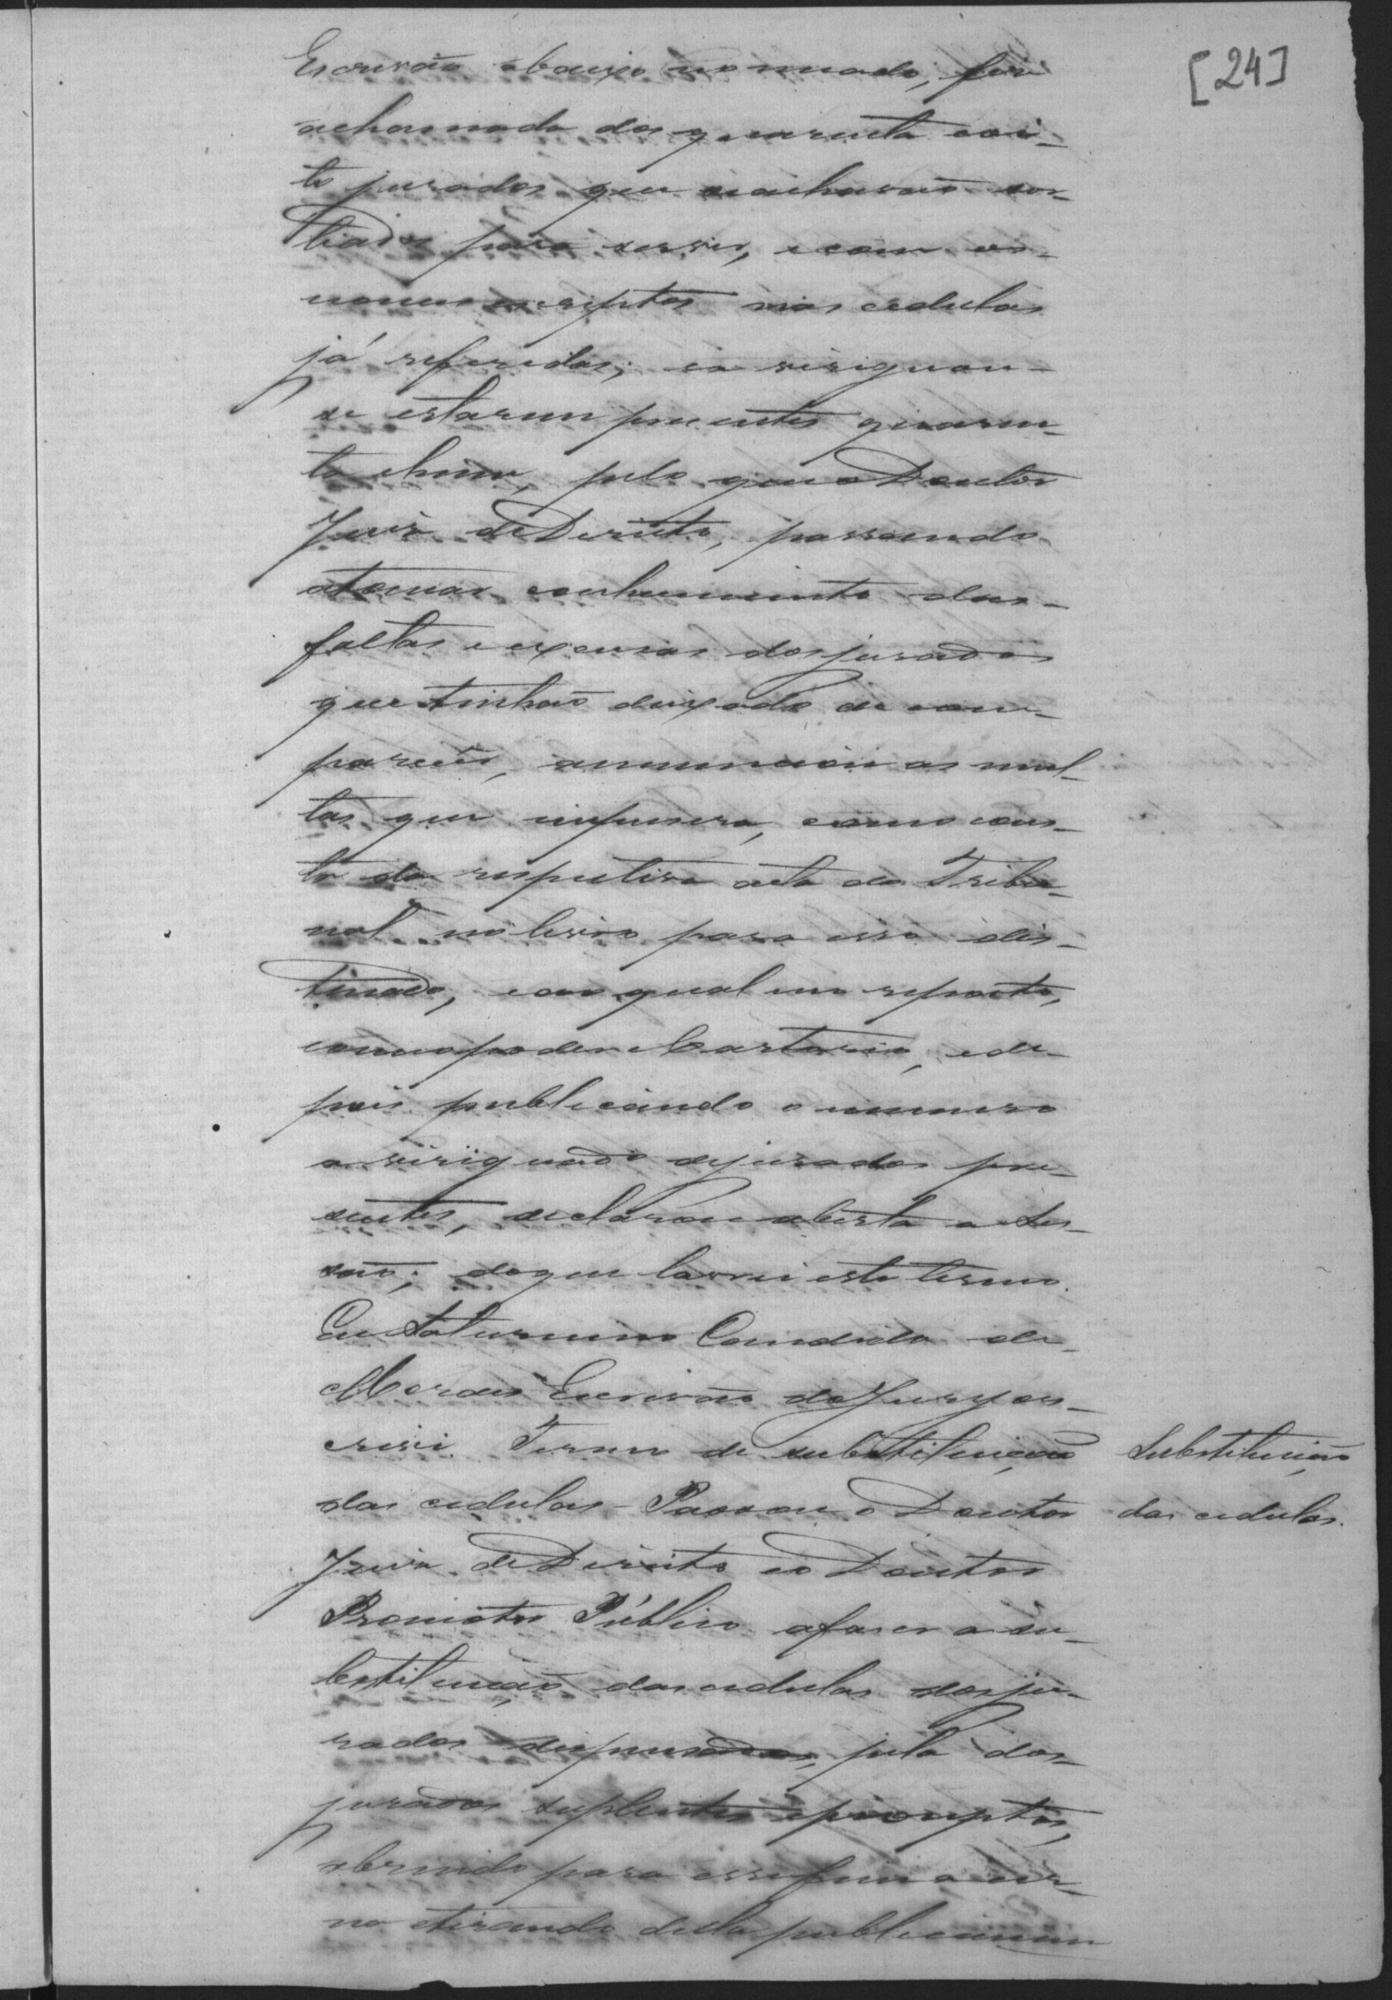 [24]
Escrivão abaixo nomeado, fez
achamada dos quarenta eoi-
to jurados que seachavão sor-
tiados para servir, e com os
nomes escriptos nas cedulas
já referidas; e averiguan-
se estarem presentes quaren-
ta e hum, pelo que o Doutor
Juiz de Direito, passando
atomar conhecimento das
faltas e excusas dos jurados
que tinhão deixado de com-
parecer, annunciou as mul-
tas que impusera, como cons-
ta da respectiva acta do Tribu-
nal no livro para isso des-
tinado, e ao qual me reporto,
em o poder e Cartorio, e de-
pois publicando o numero
averiguado de jurados pre-
sentes, declarou aberta a ses-
são; do que lavrei este termo.
Eu Saturnino Candido de
Moraes Escrivão do Jury es-
crevi. Termo de substituição
das cedulas - Passou o Doutor
Juiz de Direito eo Doutor
Promotor Público afazer a su-
bstituição das cedulas dos ju-
rados dispensados, pela dos
jurados suplentes e promptos,
abrindo para esse fim a ur-
na etirando della publicamen
Substituição
das cedulas.